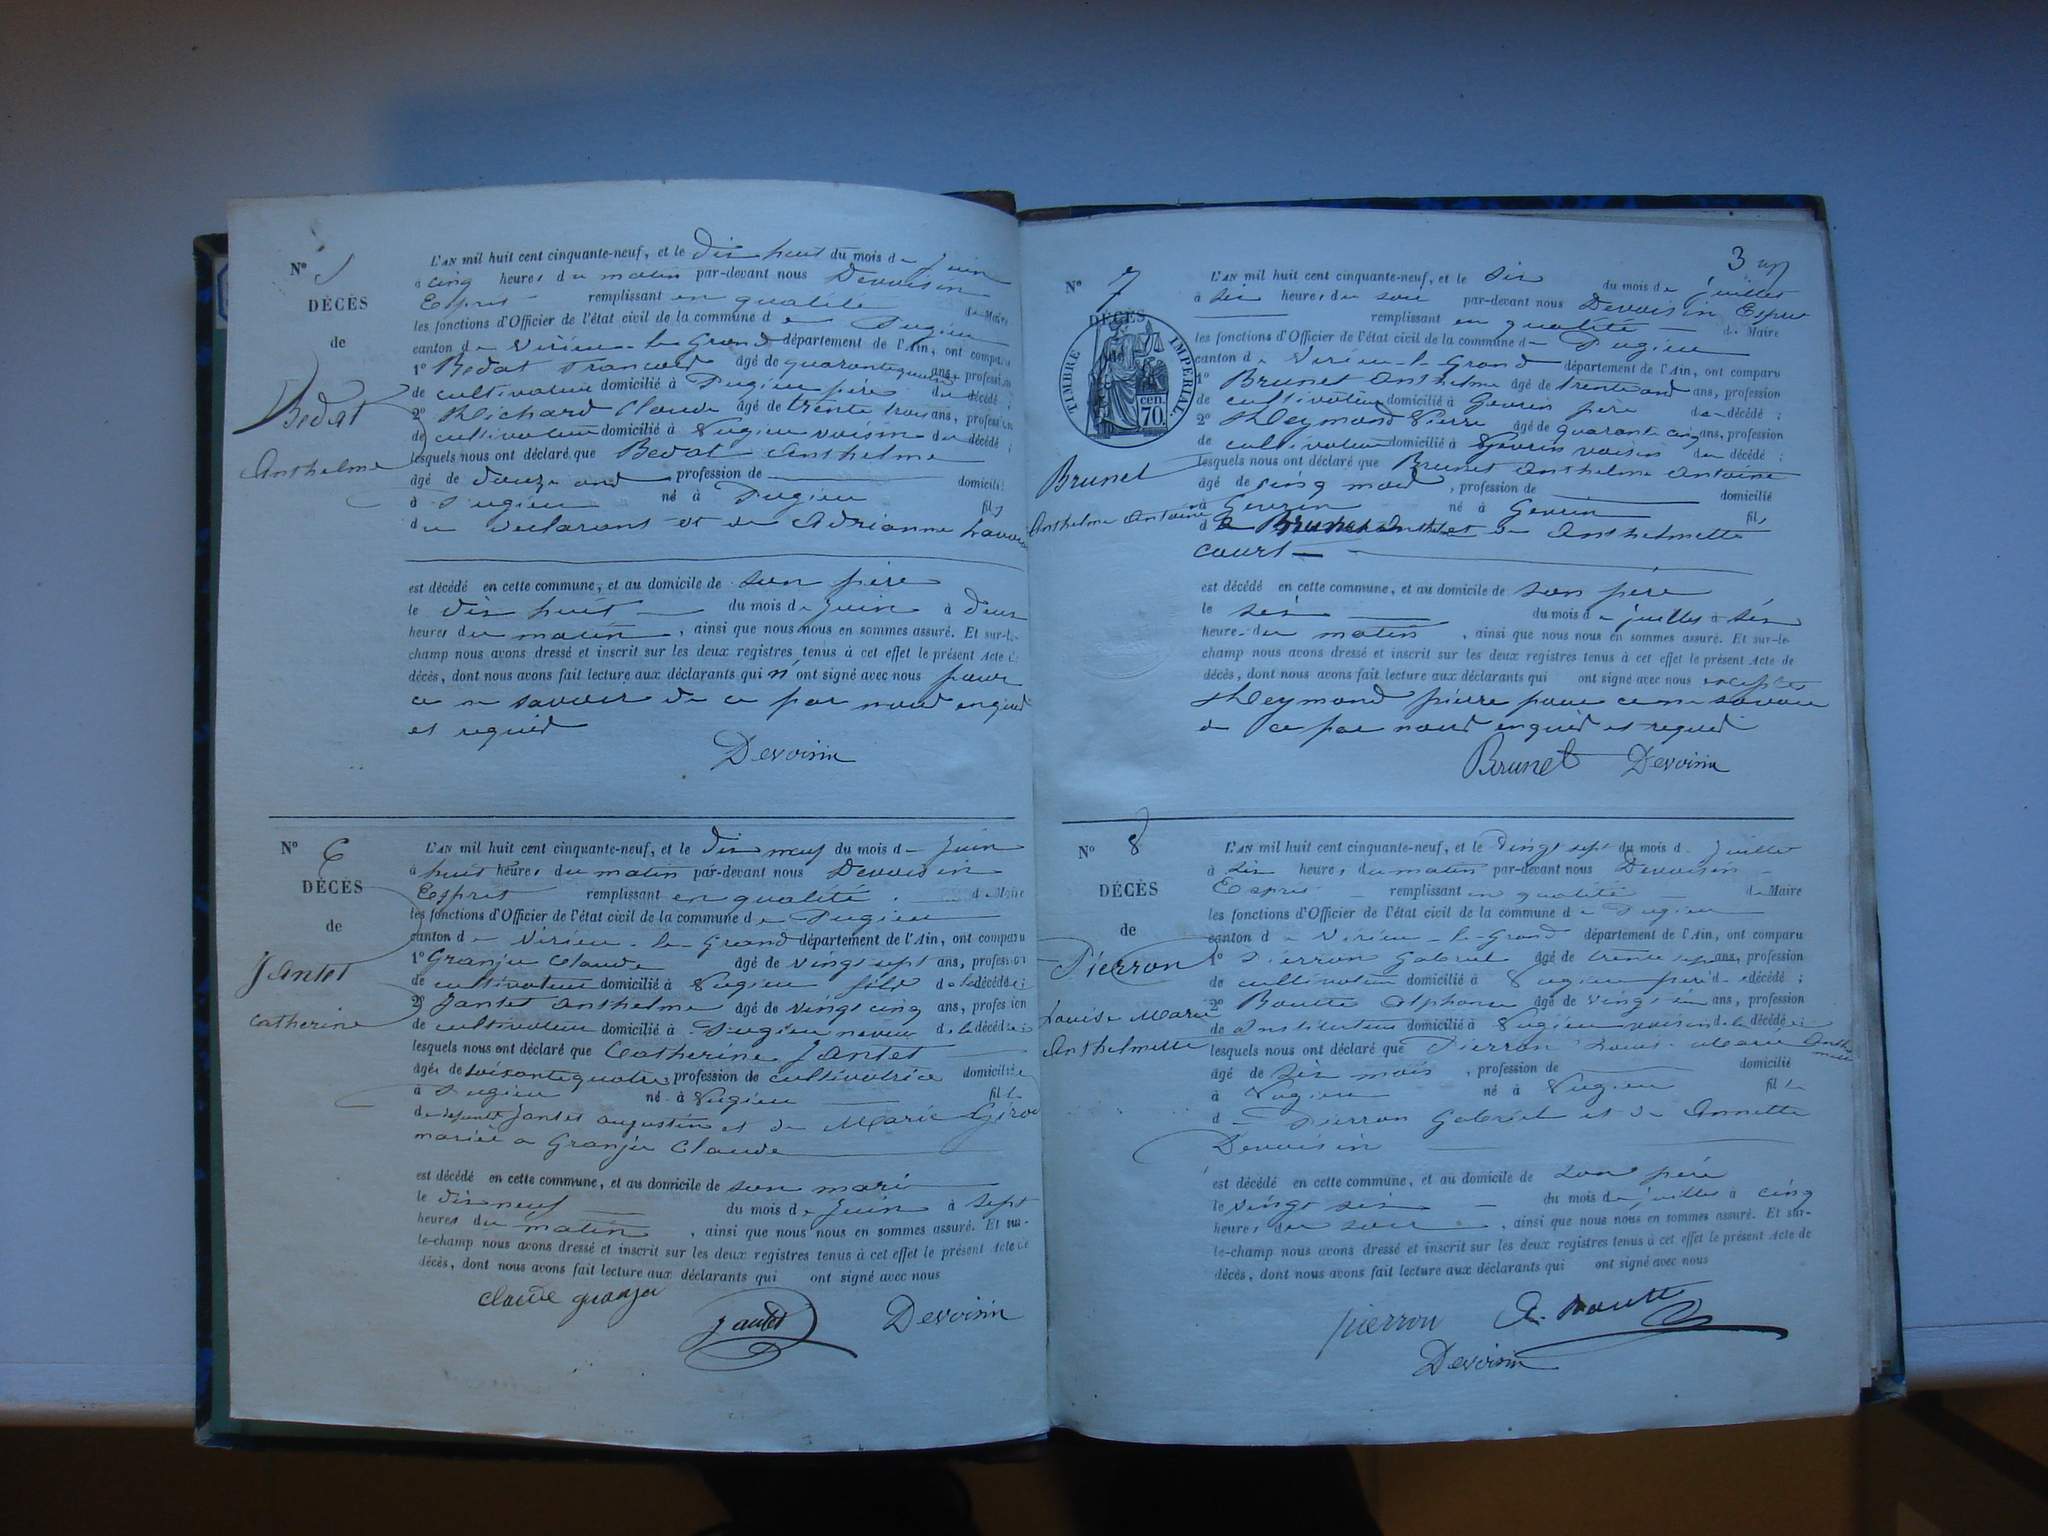 N° 5
DÉCÈS
de
Bedat
Anthelme
L'AN mil huit cent cinquante-neuf, et le dix huit du mois de juin
à cinq heures du matin par-devant nous Devoisin
Esprit remplissant en qualité de Maire
les fonctions d'Officier de l'état civil de la commune de Pugieu
canton de Virieu-le-Grand département de l'Ain, ont comparu
1° Bedat francois âgé de quarante quatre ans, profession
de cultivateur domicilié à Pugieu père du décédé ;
2° Richard Claude âgé de trente trois ans, profession
de cultivateur domicilié à Pugieu voisin du décédé ;
lesquels nous ont déclaré que Bedat Anthelme
âgé de douze ans profession de domicilié
à Pugieu né à Pugieu fils
du declarant et de Adrianne
est décédé en cette commune, et au domicile de son père
le dix huit du mois de juin à deux
heures du matin, ainsi que nous nous en sommes assuré. Et sur-le-
champ nous avons dressé et inscrit sur les deux registres tenus à cet effet le présent Acte de
décès, dont nous avons fait lecture aux déclarants qui n'ont signé avec nous pour
ce ne savoir de ce par nous enquis
et requis
Devoisin
N° 6
DÉCÈS
de
Jantet
Catherine
L'AN mil huit cent cinquante-neuf, et le dix neuf du mois de juin
à huit heures du matin par-devant nous Devoisin
Esprit remplissant en qualité de Maire
les fonctions d'Officier de l'état civil de la commune de Pugieu
canton de Virieu-le-Grand département de l'Ain, ont comparu
1° Granju Claude âgé de vingt sept ans, profession
de cultivateur domicilié à Pugieu fils de la décédée ;
2° Jantet Anthelme âgé de vingt cinq ans, profession
de cultivateur domicilié à Pugieu neveu de la décédée ;
lesquels nous ont déclaré que Catherine Jantet
âgée de soixante quatre profession de cultivatrice domiciliée
à Pugieu né à Pugieu fille
de defunt Jantet augustin et de Marie Girod
mariée a Granju Claude
est décédé en cette commune, et au domicile de son mari
le dix neuf du mois de juin à sept
heures du matin, ainsi que nous nous en sommes assuré. Et sur-
le-champ nous avons dressé et inscrit sur les deux registres tenus à cet effet le présent Acte de
décès, dont nous avons fait lecture aux déclarants qui ont signé avec nous
claude granju
Jantet Devoisin
3
N° 7
DÉCÈS
de
TIMBRE IMPÉRIAL
cen. 70.
Brunet
Anthelme Antoine
L'AN mil huit cent cinquante-neuf, et le six du mois de juillet
à six heures du soir par-devant nous Devoisin Esprit
remplissant en qualité de Maire
les fonctions d'Officier de l'état civil de la commune de Pugieu
canton de Virieu-le-Grand département de l'Ain, ont comparu
1° Brunet Anthelme âgé de trente ans, profession
de cultivateur domicilié à Gevrin père du décédé ;
2° Reymond Pierre âgé de quarante cinq ans, profession
de cultivateur domicilié à Gevrin voisin du décédé ;
lesquels nous ont déclaré que Brunet Anthelme Antoine
âgé de cinq mois, profession de domicilié
à Gevrin né à Gevrin fils
de Brunet Anthelme et de Anthelmette
court
est décédé en cette commune, et au domicile de son père
le six du mois de juillet à six
heure du matin, ainsi que nous nous en sommes assuré. Et sur-le-
champ nous avons dressé et inscrit sur les deux registres tenus à cet effet le présent Acte de
décès, dont nous avons fait lecture aux déclarants qui ont signé avec nous excepté
Reymond pierre pour ce ne savoir
de ce par nous enquis et requis
Brunet Devoisin
N° 8
DÉCÈS
de
Pierron
Louise Marie
Anthelmette
L'AN mil huit cent cinquante-neuf, et le vingt sept du mois de juillet
à six heures du matin par-devant nous Devoisin
Esprit remplissant en qualité de Maire
les fonctions d'Officier de l'état civil de la commune de Pugieu
canton de Virieu-le-Grand département de l'Ain, ont comparu
1° Pierron Gabriel âgé de trente sept ans, profession
de cultivateur domicilié à Pugieu père d décédé ;
2° Boutte Alphonse âgé de vingt ans, profession
de Instituteur domicilié à Pugieu voisin de la décédée ;
lesquels nous ont déclaré que Pierron Louise Marie Anthelmette
âgé de six mois, profession de domicilié
à Pugieu né à Pugieu fille
de Pierron Gabriel et de Annette
Devoisin
est décédé en cette commune, et au domicile de son père
le vingt six du mois de juillet à cinq
heures du soir, ainsi que nous nous en sommes assuré. Et sur-
le-champ nous avons dressé et inscrit sur les deux registres tenus à cet effet le présent Acte de
décès, dont nous avons fait lecture aux déclarants qui ont signé avec nous
pierron A. Boutte
Devoisin